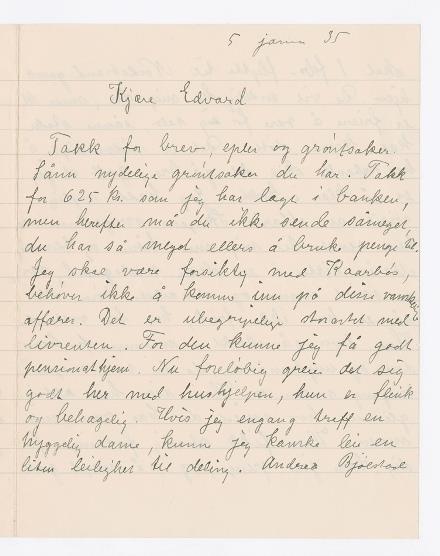 5 januar 35
Kjære Edvard
Takk for brev, epler og gróntsaker.
Sånn nydelige gróntsaker du har. Takk
for 625 ks. som jeg har lagt i banken,
men herefter må du ikke sende såmeget,
du har så meget ellers å bruke penge til.
Jeg skal være forsiktig med Kaarbós,
behóver ikke å komme inn på disse vanskelige
affærer. Det er ubegripelig storartet med
livrenten. For den kunne jeg få godt
pensionathjem. Nu forelóbig greier det sig
godt her med hushjelpen, hun er flink
og behagelig. Hvis jeg engang treff en
hyggelig dame, kunne jeg kanske leie en
liten leilighet til deling. Andrea Bjólstad